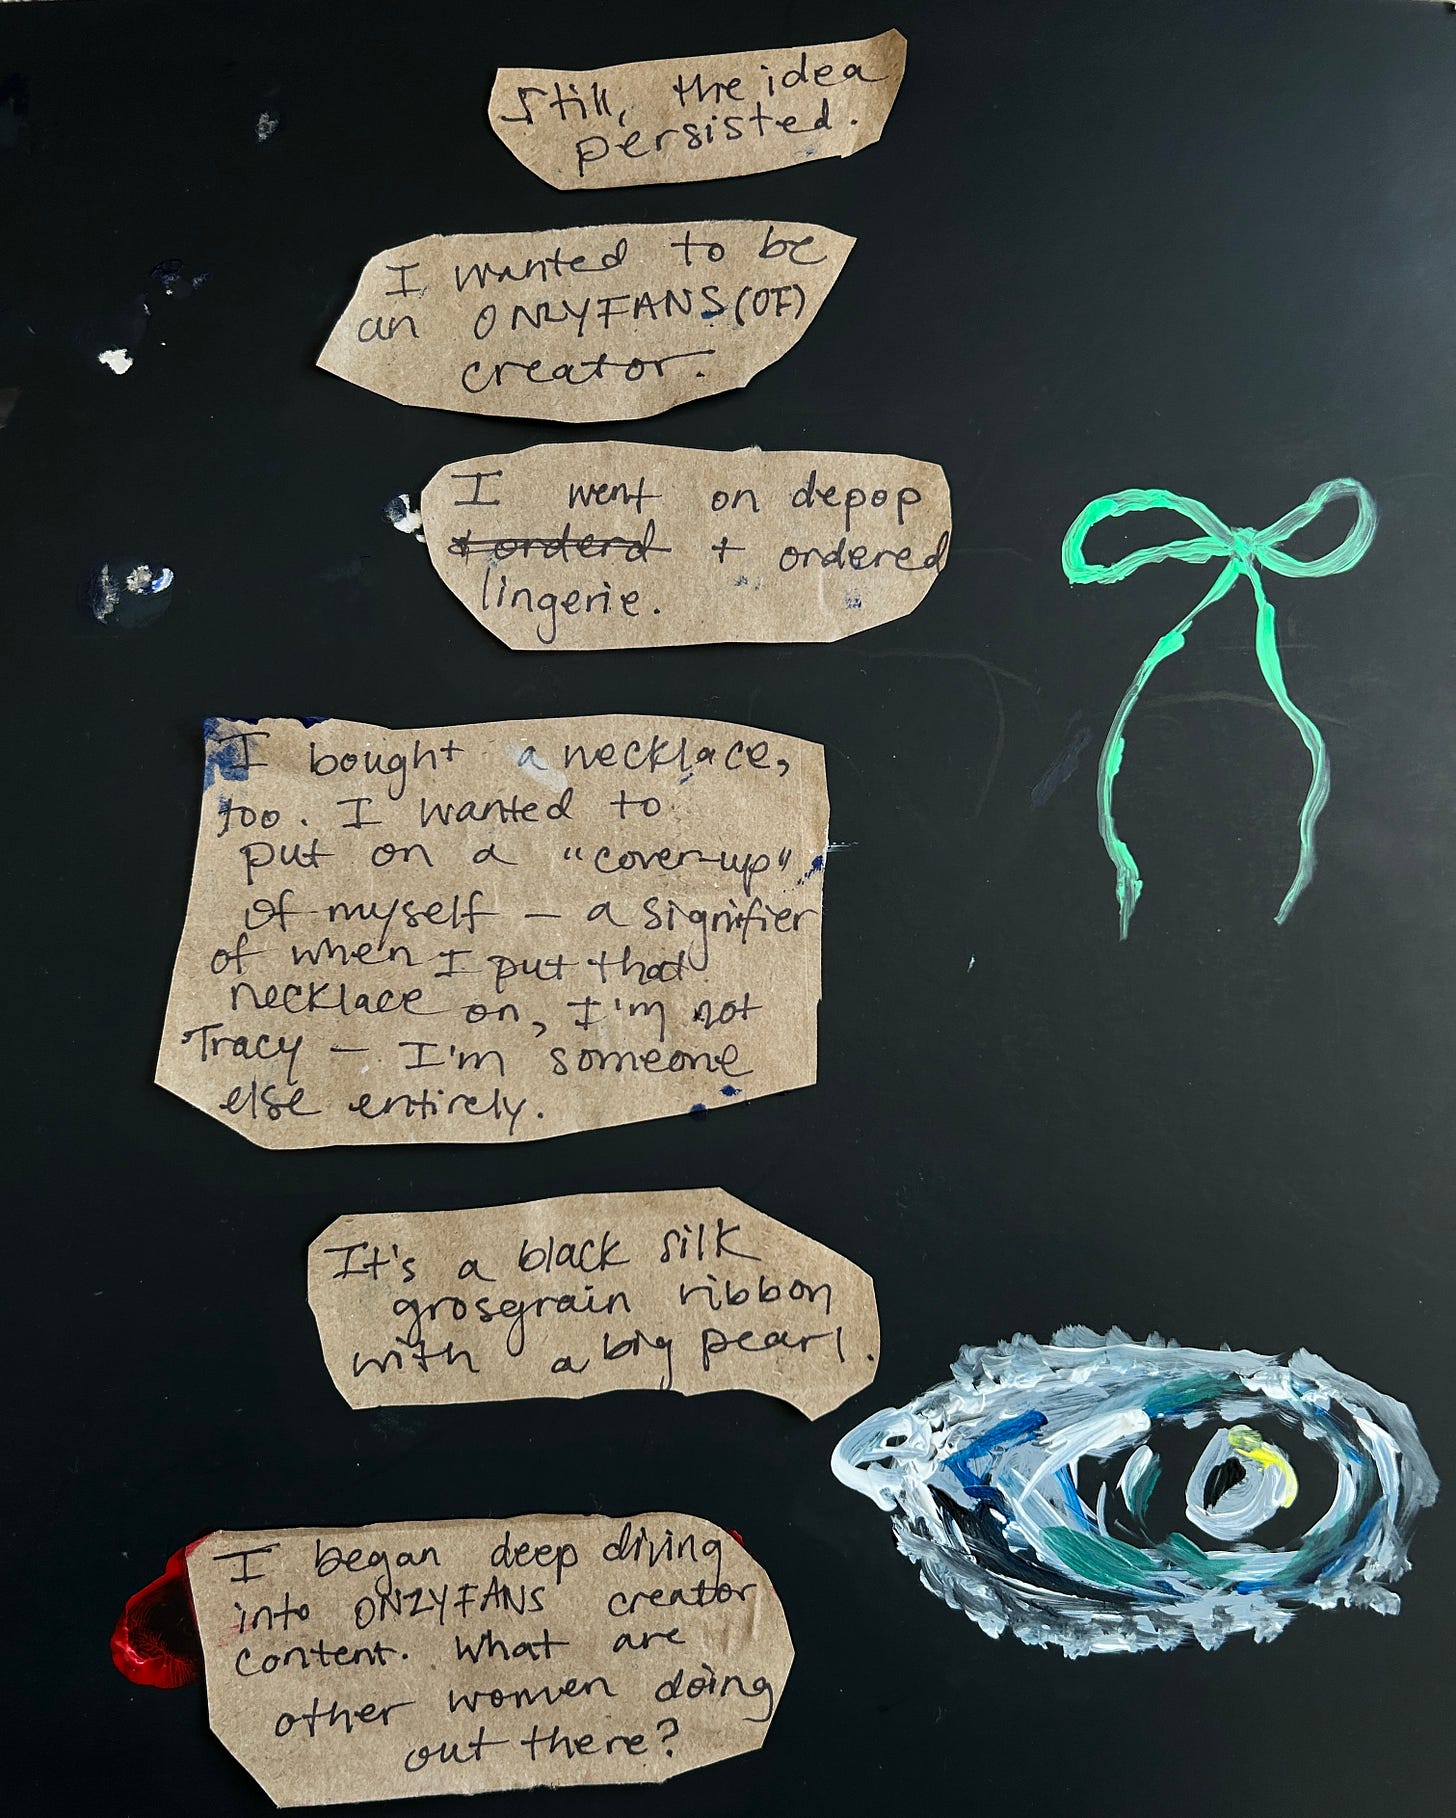 Still, the idea
persisted.
I wanted to be
an ONLYFANS (OF)
creator.
I went on depop
+ orderd + ordered
lingerie.
I bought a necklace,
too. I wanted to
put on a "cover-up"
of myself — a signifier
of when I put that
necklace on, I'm not
Tracy — I'm someone
else entirely.
It's a black silk
grosgrain ribbon
with a big pearl.
I began deep diving
into ONLYFANS creator
content. What are
other women doing
out there?